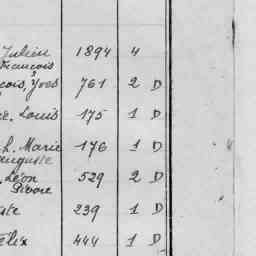 Julien 1894 4
François
çois, Yves 761 2 D
e. Louis 175 1 D
h. Marie 176 1 D
Auguste
Léon 529 2 D
Pierre
239 1 D
élix 444 1 D